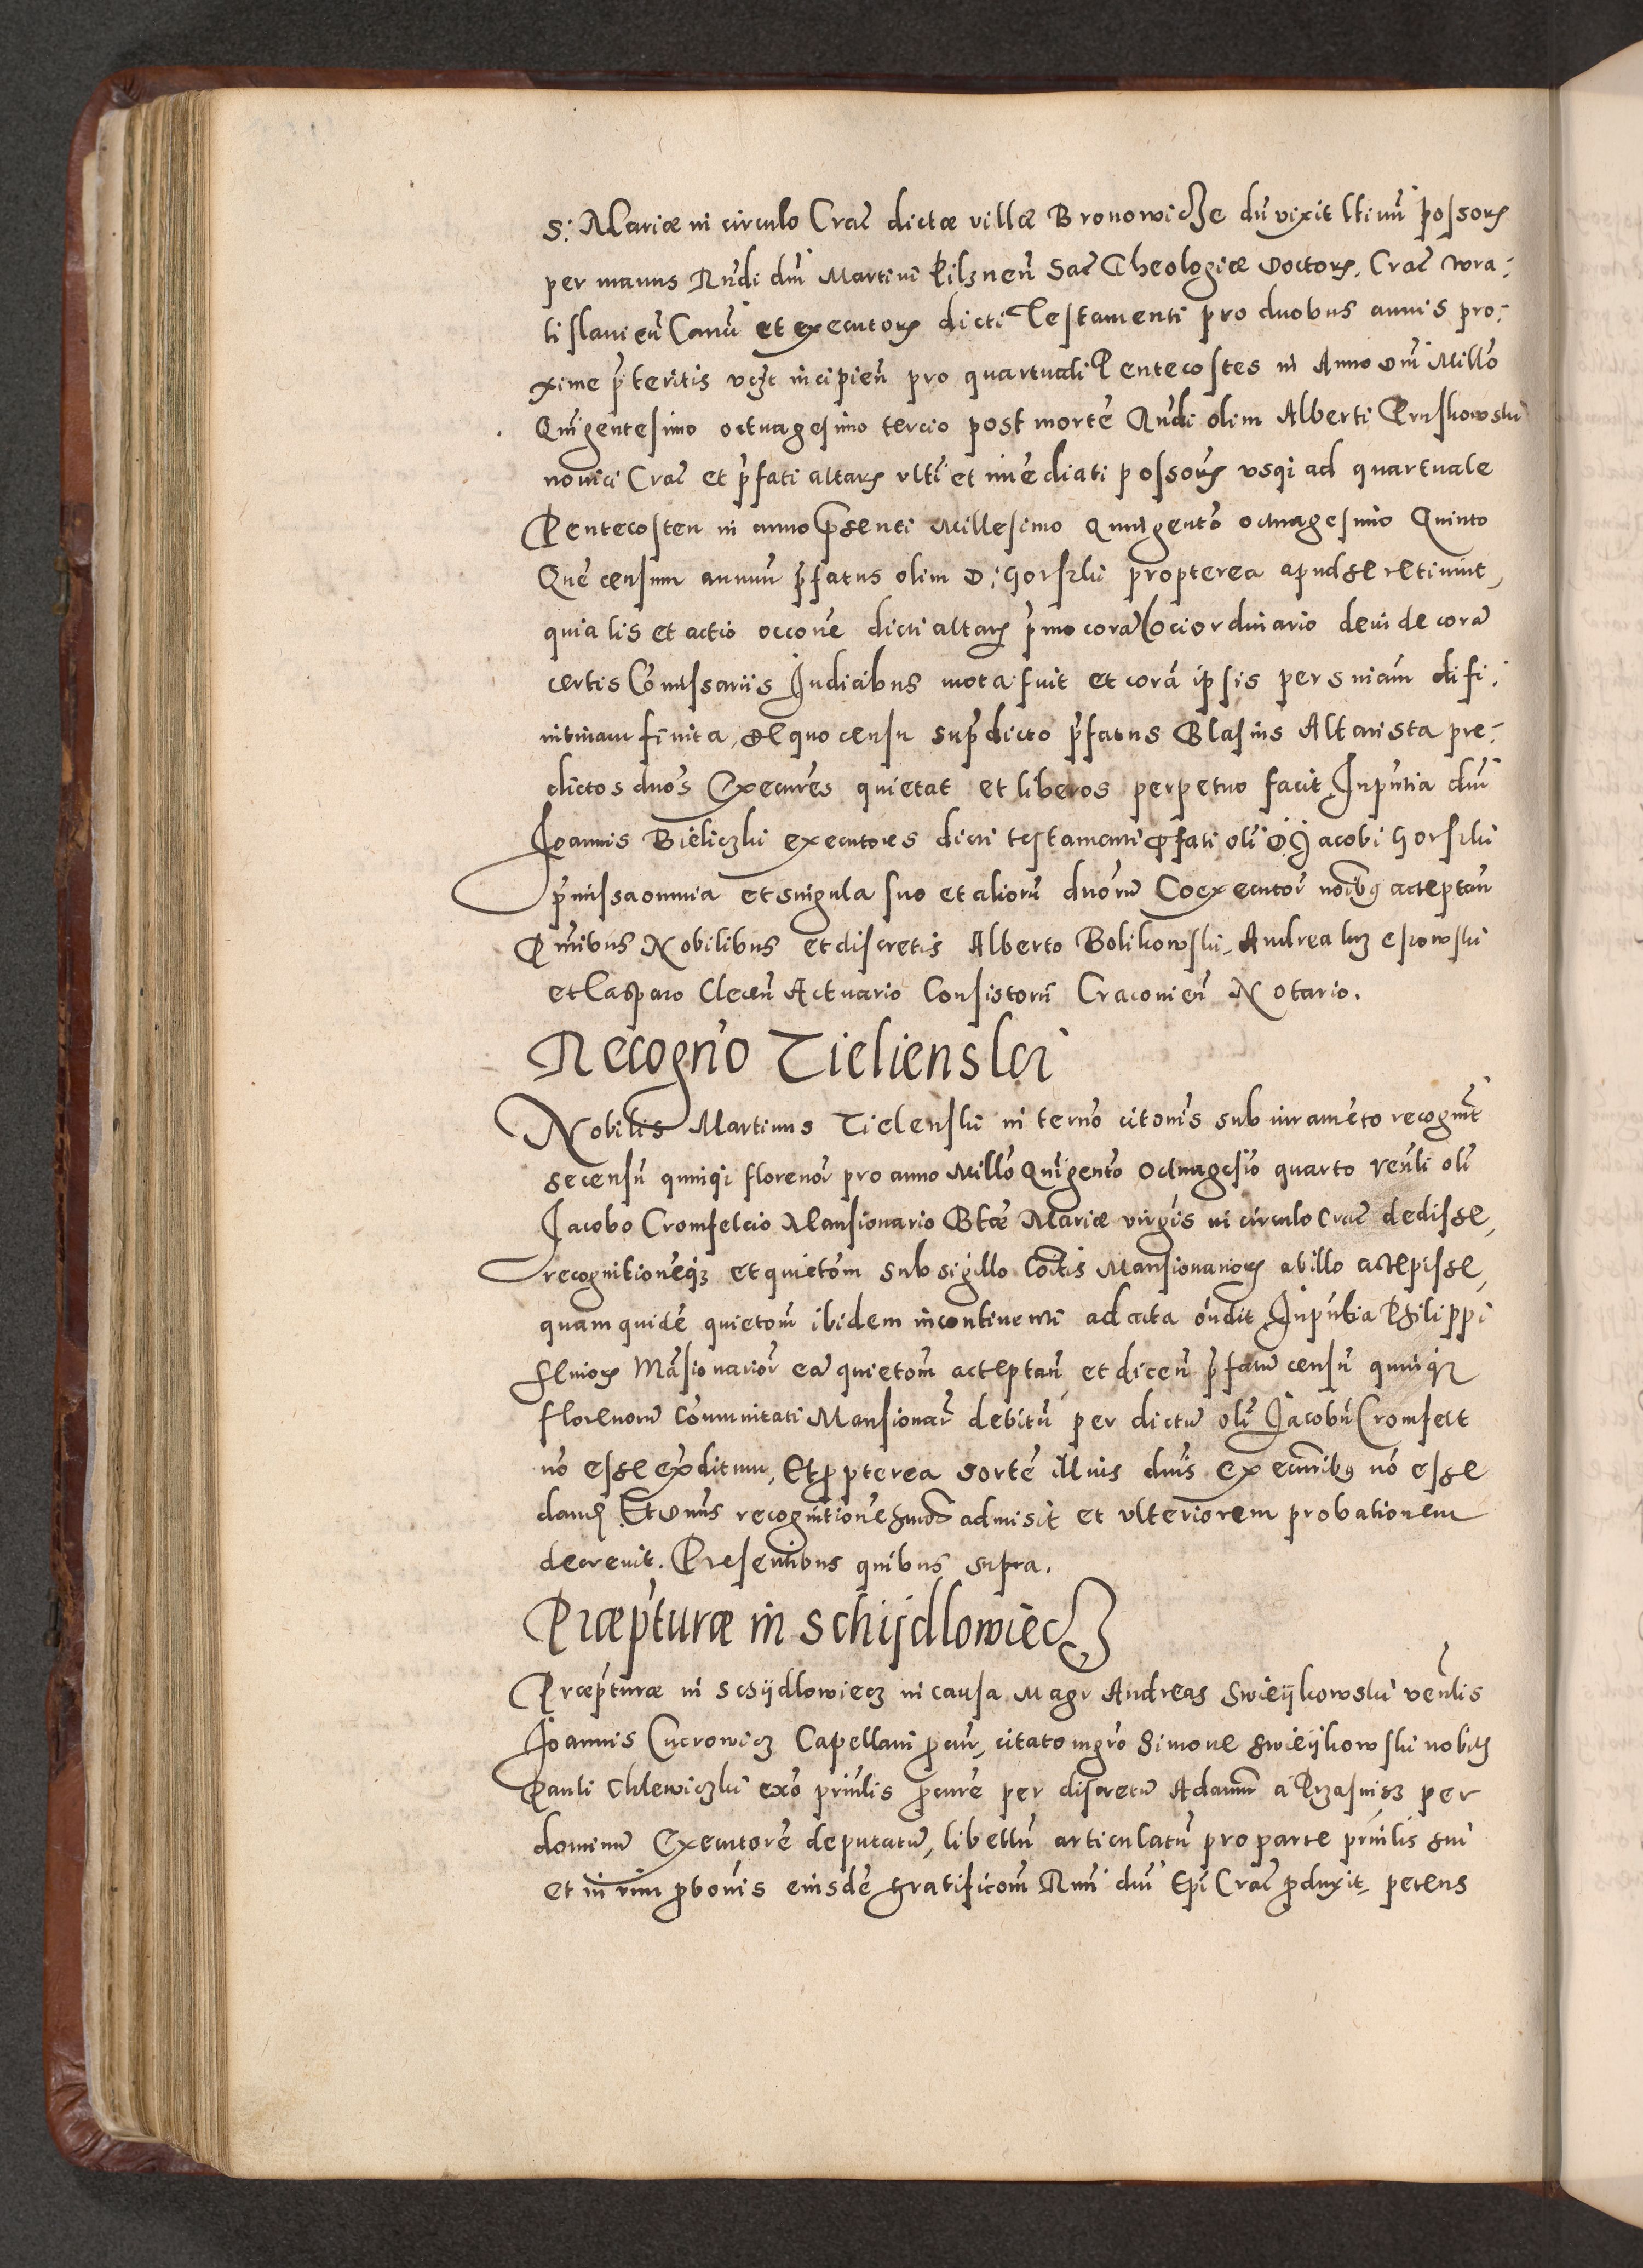 S: Mariæ in circulo Crac̃ dictæ villæ Bronowicze dũ vixit ltimũ possoris
per manus Rndi dnĩ Martini Pilznen̄ Sac̃ Theologiæ Doctoris, Crac̃ Wra:
tislavien̄ Canci et executoris dicti Testamenti pro duobus annis pro:
xime p̃teritis vczt incipien̄ pro quartuali Pentecostes in Anno Dnĩ Millõ
Quĩgentesimo octuagesimo tercio post mortẽ Rndi olim Alberti Pruskowski
novici Crac̃ et p̃fati altaris vlti et imẽdiati possoris vsqi ad quartuale
Pentecosten in anno p̃senti Millesimo Quingentõ octuagesimo Quinto
Quẽ censum annuũ p̃fatus olim D: Gorski propterea apud se retinuit,
quia lis et actio occõne dicti altaris p̃mo corã Loci ordinario deinde corã
certis Com̃issariis Judicibus mota fuit et corã ipsis per sniam difi:
nitivam finita, de quo censu sup̃dicto p̃fatus Blasius Altarista pre:
dictos duos Executr̃es quietat et liberos perpetuo facit, In pñtia dnĩ
Joannis Bieliczki executores dicti testamenti p̃fati oli D: Jacobi Gorski
p̃missa omnia et singula suo et aliorũ duorũ Coexecutor̃ noĩbus acceptan̄
Pñtibus Nobilibus et discretis Alberto Bolikowski, Andrea
et Casparo Clecen̄ Actuario Consistorii Cracovien̄ Notario.
Recogn̄o Tieliensky
Nobilis Martinus Tielenski in ternõ citonis sub iuramẽto recognit
se censũ quinqi florenor̃ pro anno Millõ Quĩgentõ Octuagesiõ quarto venli oli
Jacobo Cromfelcio Mansionario Btæ Mariæ virginis in circulo Crac̃ dedisse,
recognitionẽqz et quietõm sub sigillo Cõitis Mansionarioris ab illo accepisse,
quam quidẽ quietom̃ ibidem incontinenti ad acta õndit, In pñtia Philippi
senioris Mãsionarior̃ eã quietom̃ acceptan̄, et dicen̄ p̃fatũ censũ quinqz
florenorũ Cõmunitati Mansionar̃ debitũ per dictũ oli Jacobũ Cromfelt
nõ esse expditum, Et propterea sortẽ illius dnis executoribus nõ esse
danda Et Dnus recognitionẽ hmõi admisit et vlteriorem probationem
decrevit. Presentibus quibus supra.
Præp̃turæ in Schijdlowiecz
Præp̃turæ in Schijdlowiecz in causa Magr Andreas Swieykowski venlis
Joannis Cucrowicz Capellani p̃cur̃, citato mgr̃o Simone Swieykowski nobilis
Pauli Chlewiczki exõ prinlis p̃curẽ per discretũ Adamũ a Przasnisz per
dominũ Executorẽ deputatũ, libellũ articulatũ pro parte prinlis sui
et in vim p̃bonis eiusdẽ gratificom̃ Rmi dnĩ Epĩ Crac̃ p̃duxit, petens